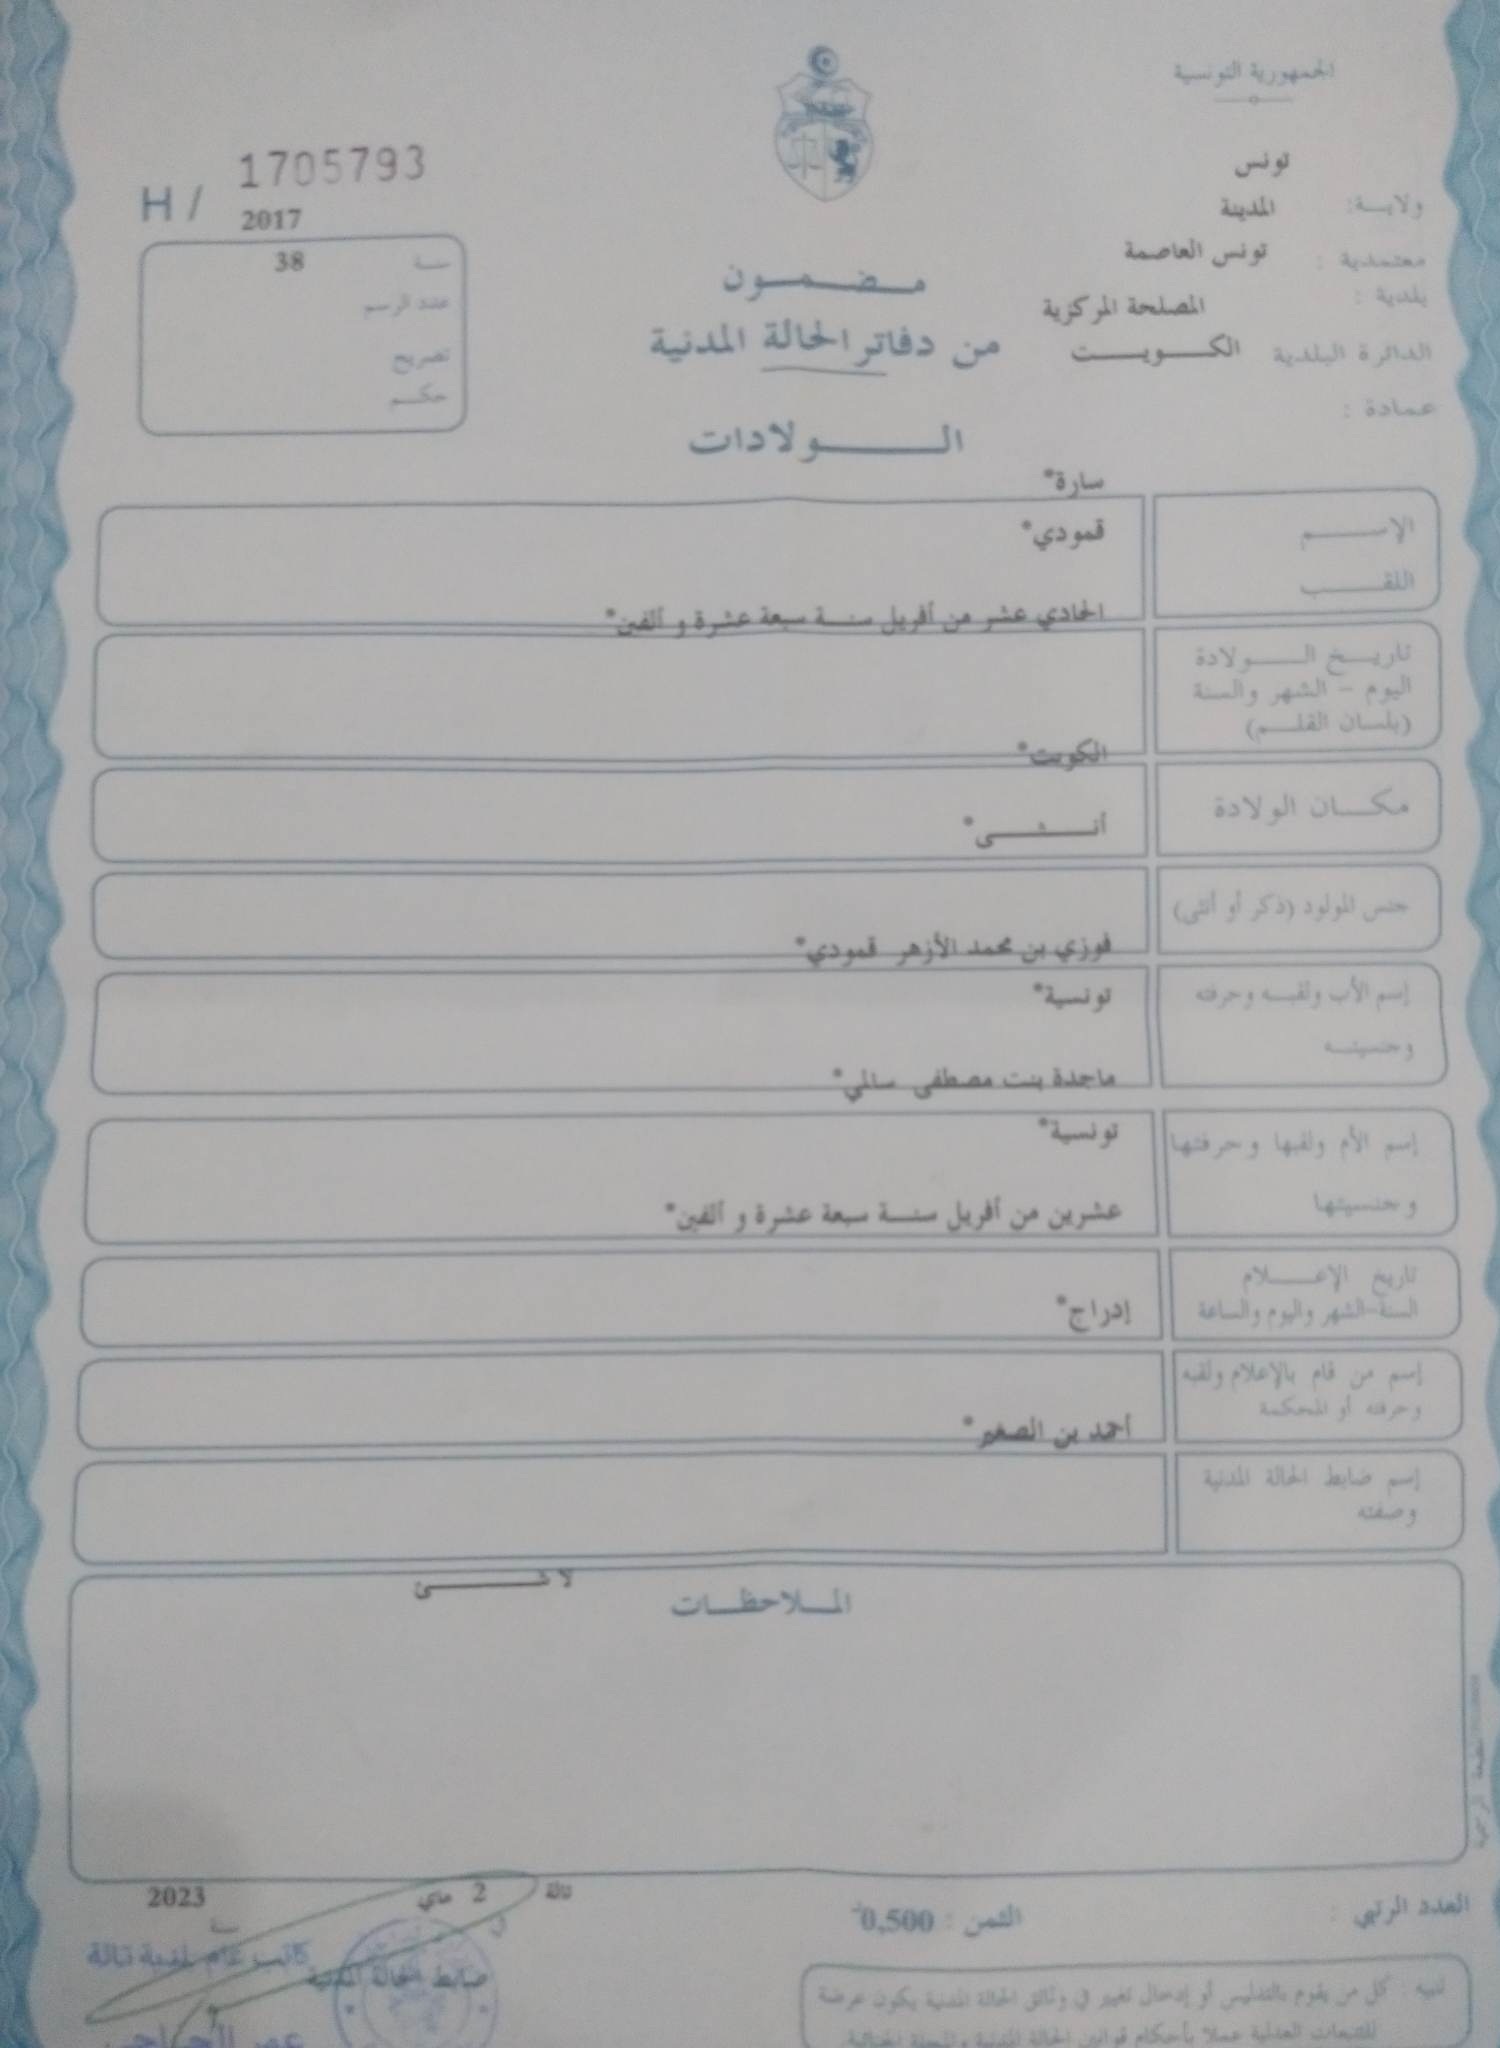 الجمهورية التونسية
تونس
ولايـــة: المدينة
معتمدية : تونس العاصمة
بلدية :
المصلحة المركزية
الدائرة البلدية الكـــويـــت
عمادة :
H / 1705793
2017
سنــة 38
عدد الرسم
تصريح
حكـــم
مـضـمـــون
من دفاتر الحالة المدنية
الـــــولادات
سارة*
الإســـــم قمودي*
اللقـــــب
الحادي عشر من أفريل سنـــة سبعة عشرة و ألفين*
تاريـــخ الـــــولادة
اليوم - الشهر والسنة
(بلسان القلـــم)
الكويت*
مكـــان الولادة
أنـــــثـــــى*
جنس المولود (ذكر أو أنثى)
فوزي بن محمد الأزهر قمودي*
إسم الأب ولقبـــه وحرفته تونسية*
وجنسيتـــه
ماجدة بنت مصطفى سالمي*
إسم الأم ولقبها وحرفتها تونسية*
وجنسيتها
عشرين من أفريل سنـــة سبعة عشرة و ألفين*
تاريخ الإعـــــلام
السنة-الشهر واليوم والساعة
إدراج*
إسم من قام بالإعلام ولقبه
وحرفته أو المحكمة
أحمد بن الصغير*
إسم ضابط الحالة المدنية
وصفته
لا شـــــــئ
المـــلاحظـــات
العدد الرتبي :
الثمن : 0,500
تالة 2 ماي 2023
في سنة
كاتب عام لمدينة تالة
ضابط الحالة المدنية
تنبيه : كل من يقوم بالتدليس أو إدخال تغيير في وثائق الحالة المدنية يكون عرضة
للتتبعات العدلية عملا بأحكام قوانين الحالة المدنية والمجلة الجنائية.